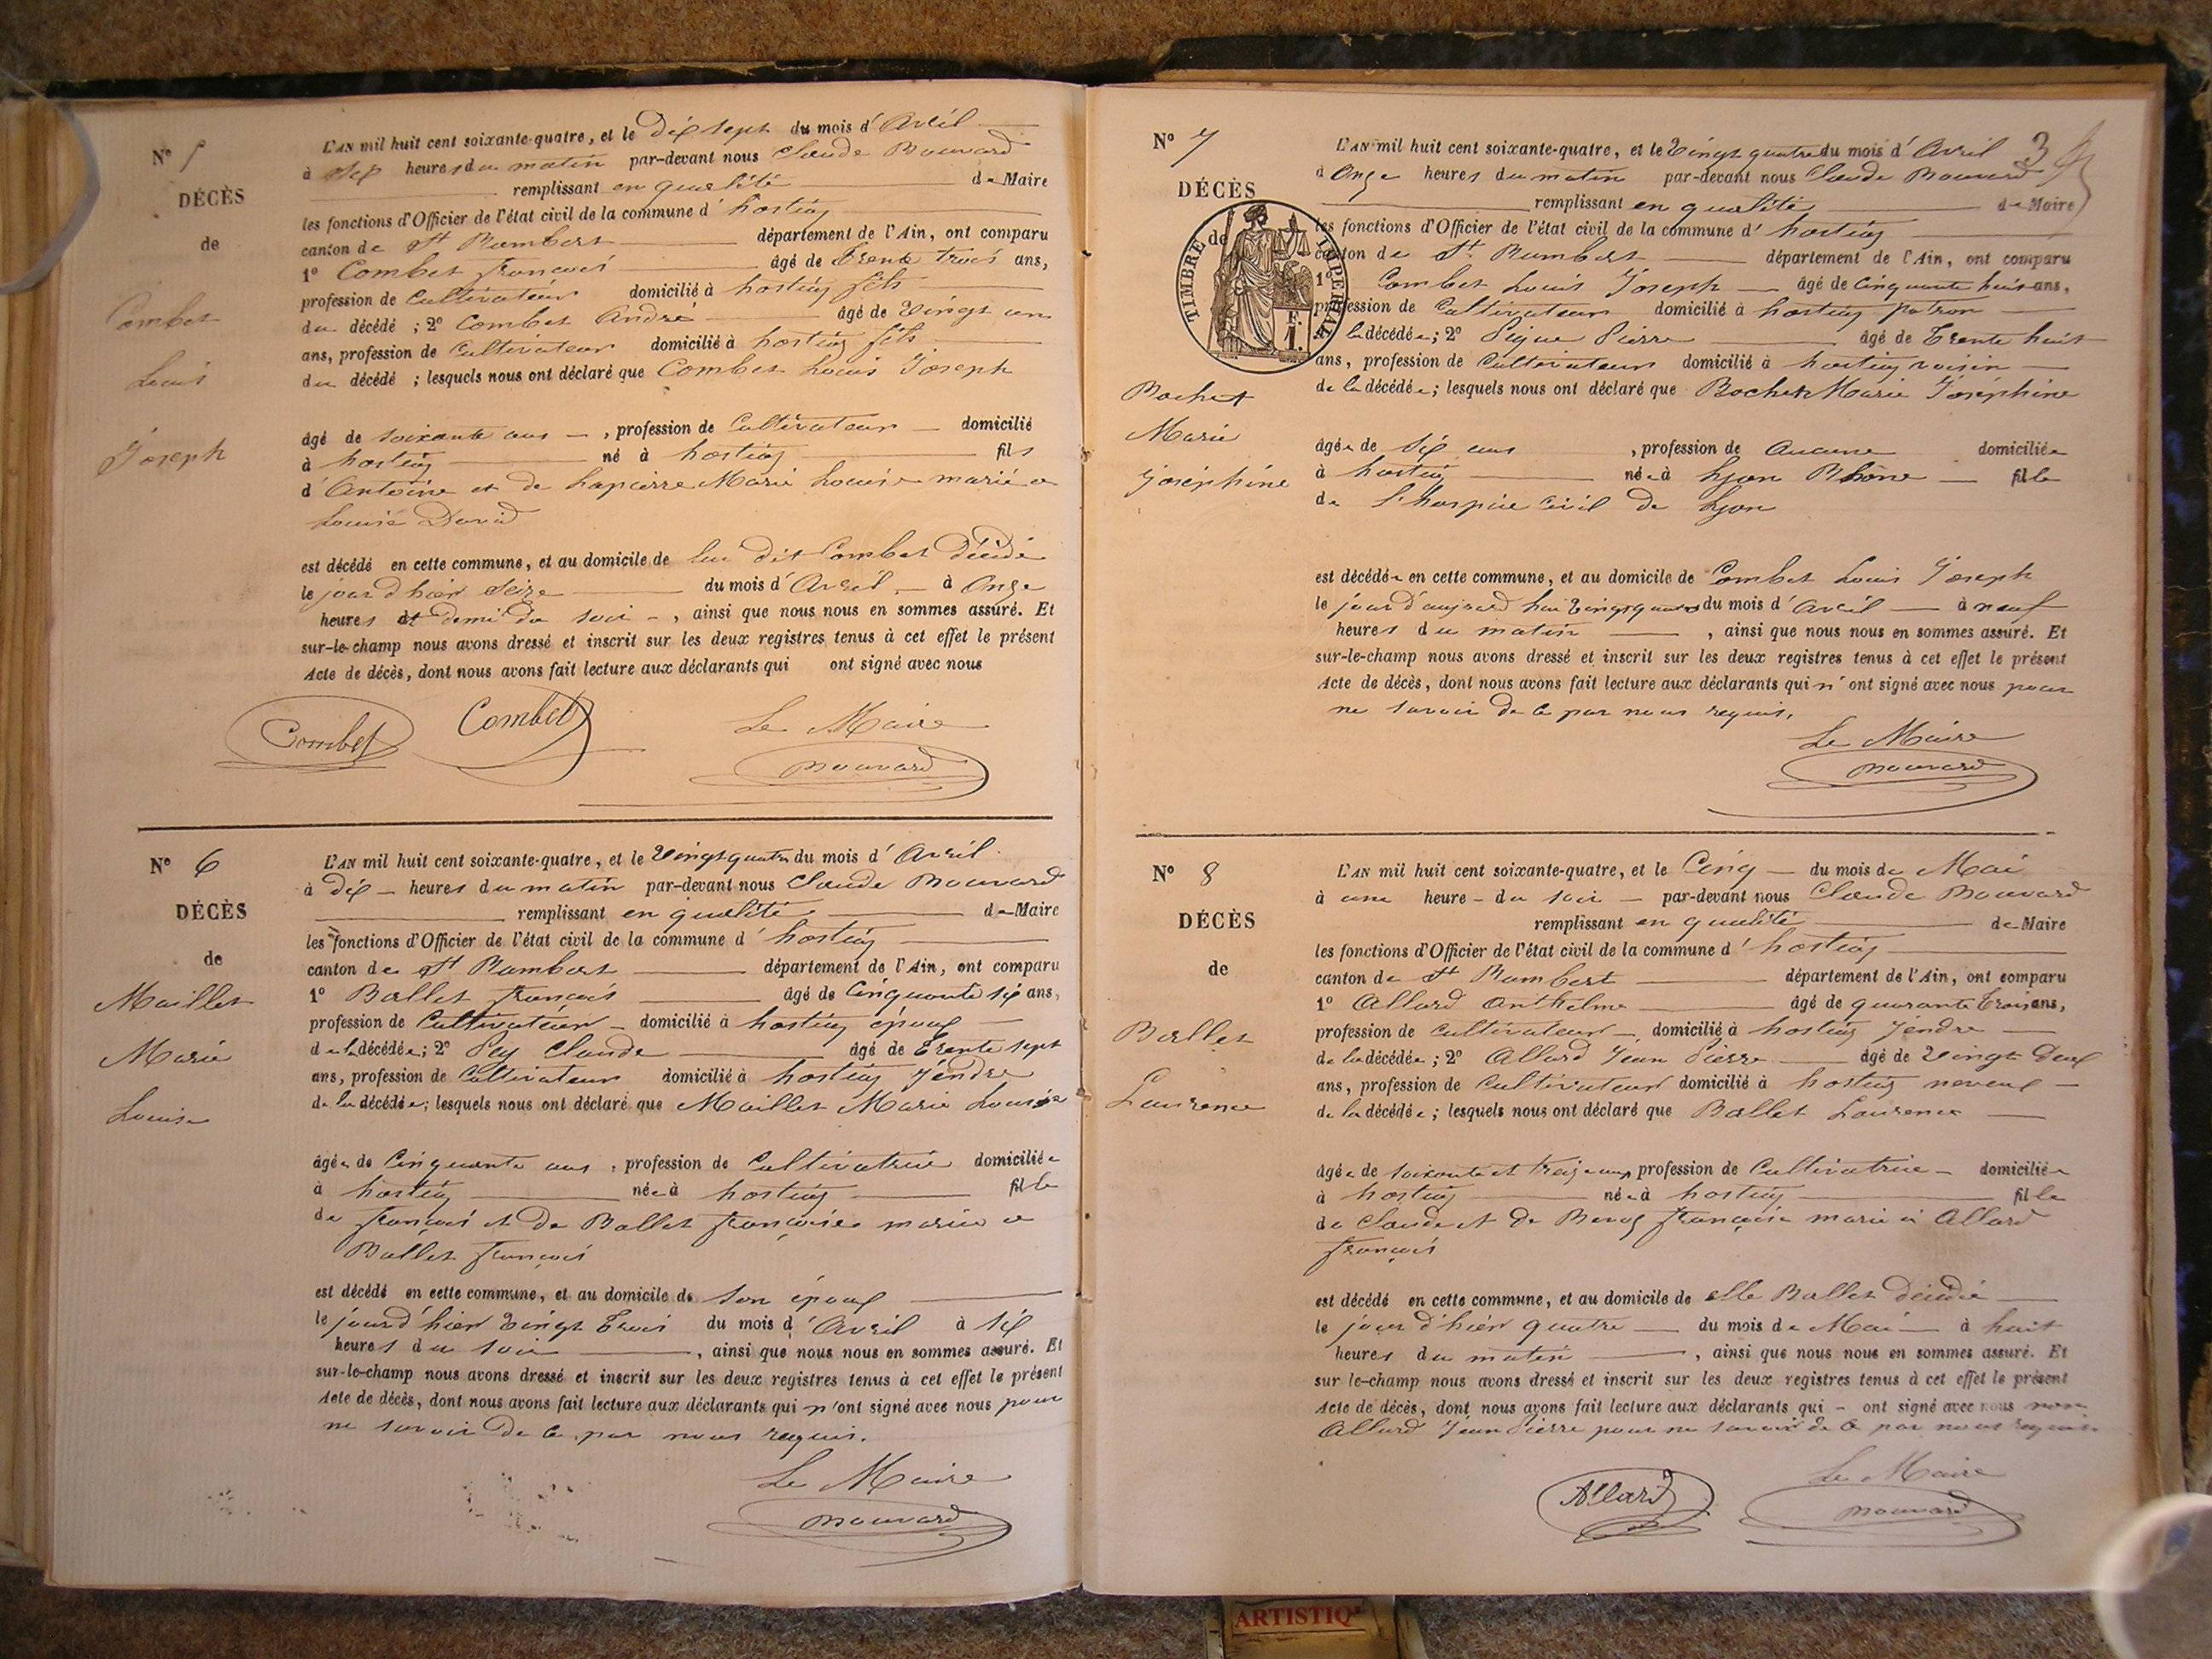 N° 5
DÉCÈS
de
Combet
Louis
Joseph
L'AN mil huit cent soixante-quatre, et le Dix sept du mois d'Avril
à Six heures du matin par-devant nous Claude Bouvard
remplissant en qualité de Maire
les fonctions d'Officier de l'état civil de la commune d'hostiaz
canton de St Rambert département de l'Ain, ont comparu
1° Combet françois âgé de Trente trois ans,
profession de Cultivateur domicilié à hostiaz fils
du décédé ; 2° Combet André âgé de Vingt un
ans, profession de Cultivateur domicilié à hostiaz fils
du décédé ; lesquels nous ont déclaré que Combet Louis Joseph
âgé de soixante ans , profession de Cultivateur domicilié
à hostiaz né à hostiaz fils
d'Antoine et de Lapierre Marie Louise marié a
Louise David
est décédé en cette commune, et au domicile de lui dit Combet Décédé
le jour d'hier Seize du mois d'Avril à Onze
heures et demi du soir , ainsi que nous nous en sommes assuré. Et
sur-le-champ nous avons dressé et inscrit sur les deux registres tenus à cet effet le présent
Acte de décès, dont nous avons fait lecture aux déclarants qui ont signé avec nous
Combet Combet Le Maire
Bouvard
N° 6
DÉCÈS
de
Maillet
Marie
Louise
L'AN mil huit cent soixante-quatre, et le Vingt quatre du mois d'Avril
à dix heures du matin par-devant nous Claude Bouvard
remplissant en qualité de Maire
les fonctions d'Officier de l'état civil de la commune d'hostiaz
canton de St Rambert département de l'Ain, ont comparu
1° Ballet françois âgé de Cinquante six ans,
profession de Cultivateur domicilié à hostiaz époux
de la décédée ; 2° Pey Claude âgé de Trente sept
ans, profession de Cultivateur domicilié à hostiaz Jendre
de la décédée ; lesquels nous ont déclaré que Maillet Marie Louise
âgée de Cinquante ans , profession de Cultivatrice domiciliée
à hostiaz née à hostiaz fille
de françois et de Ballet françoise mariée a
Ballet françois
est décédé en cette commune, et au domicile de son époux
le jour d'hier Vingt Trois du mois d'Avril à six
heures du soir , ainsi que nous nous en sommes assuré. Et
sur-le-champ nous avons dressé et inscrit sur les deux registres tenus à cet effet le présent
Acte de décès, dont nous avons fait lecture aux déclarants qui n'ont signé avec nous pour
ne savoir de ce par nous requis.
Le Maire
Bouvard
N° 7
DÉCÈS
de
TIMBRE IMPÉRIAL
F.
1.
Bochet
Marie
Joséphine
3
L'AN mil huit cent soixante-quatre, et le Vingt quatre du mois d'Avril
à Onze heures du matin par-devant nous Claude Bouvard
remplissant en qualité de Maire
les fonctions d'Officier de l'état civil de la commune d'hostiaz
canton de St Rambert département de l'Ain, ont comparu
1° Combet Louis Joseph âgé de Cinquante huit ans,
profession de Cultivateur domicilié à hostiaz patron
de la décédée ; 2° Pierre âgé de Trente huit
ans, profession de Cultivateur domicilié à hostiaz voisin
de la décédée ; lesquels nous ont déclaré que Bochet Marie Joséphine
âgée de Six ans , profession de Aucune domiciliée
à hostiaz née à Lyon Rhône fille
de L'hospice Civil de Lyon
est décédée en cette commune, et au domicile de Combet Louis Joseph
le jour d'aujourd hui Vingt quatre du mois d'Avril à neuf
heures du matin , ainsi que nous nous en sommes assuré. Et
sur-le-champ nous avons dressé et inscrit sur les deux registres tenus à cet effet le présent
Acte de décès, dont nous avons fait lecture aux déclarants qui n'ont signé avec nous pour
ne savoir de ce par nous requis.
Le Maire
Bouvard
N° 8
DÉCÈS
de
Ballet
Laurence
L'AN mil huit cent soixante-quatre, et le Cinq du mois de Mai
à une heure du soir par-devant nous Claude Bouvard
remplissant en qualité de Maire
les fonctions d'Officier de l'état civil de la commune d'hostiaz
canton de St Rambert département de l'Ain, ont comparu
1° Allard Anthelme âgé de quarante Trois ans,
profession de Cultivateur domicilié à hostiaz Jendre
de la décédée ; 2° Allard Jean Pierre âgé de Vingt Deux
ans, profession de Cultivateur domicilié à hostiaz neveux
de la décédée ; lesquels nous ont déclaré que Ballet Laurence
âgée de soixante et treize ans, profession de Cultivatrice domiciliée
à hostiaz née à hostiaz fille
de Claude et de françoise marié à Allard
françois
est décédé en cette commune, et au domicile de elle Ballet décédé
le jour d'hier quatre du mois de Mai à huit
heures du matin , ainsi que nous nous en sommes assuré. Et
sur le-champ nous avons dressé et inscrit sur les deux registres tenus à cet effet le présent
Acte de décès, dont nous avons fait lecture aux déclarants qui ont signé avec nous non
Allard Jean Pierre pour ne savoir de ce par nous requis
Allard Le Maire
Bouvard
ARTISTIQ